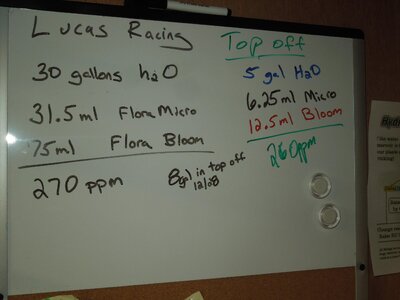 Lucas Racing
30 gallons h2O
31.5ml Flora Micro
75ml Flora Bloom
270 ppm
8gal in top off
12/08
Top off
5 gal H2O
6.25ml Micro
12.5ml Bloom
260ppm